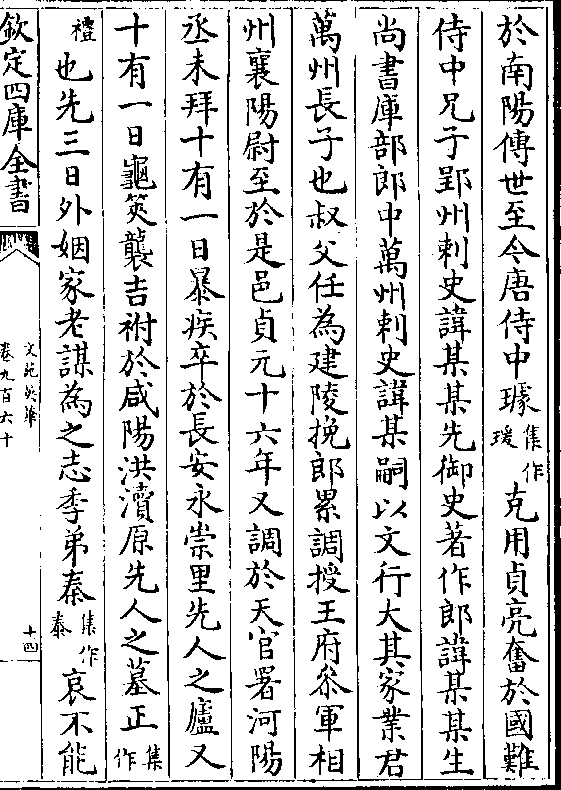 於南陽傳世至今唐侍中璩集作瑗克用貞亮奮於國難
侍中兄子郢州刺史諱某某先御史著作郎諱某某生
尚書庫部郎中萬州刺史諱某嗣以文行大其家業君
萬州長子也叔父任為建陵挽郎累調授王府叅軍相
州襄陽尉至於是邑貞元十六年又調於天官署河陽
丞未拜十有一日暴疾卒於長安永崇里先人之廬又
十有一日龜筴襲吉祔於咸陽洪瀆原先人之墓正集作
禮也先三日外姻家老謀為之志季弟秦集作泰哀不能
欽定四庫全書
文苑英華
卷九百六十
十四